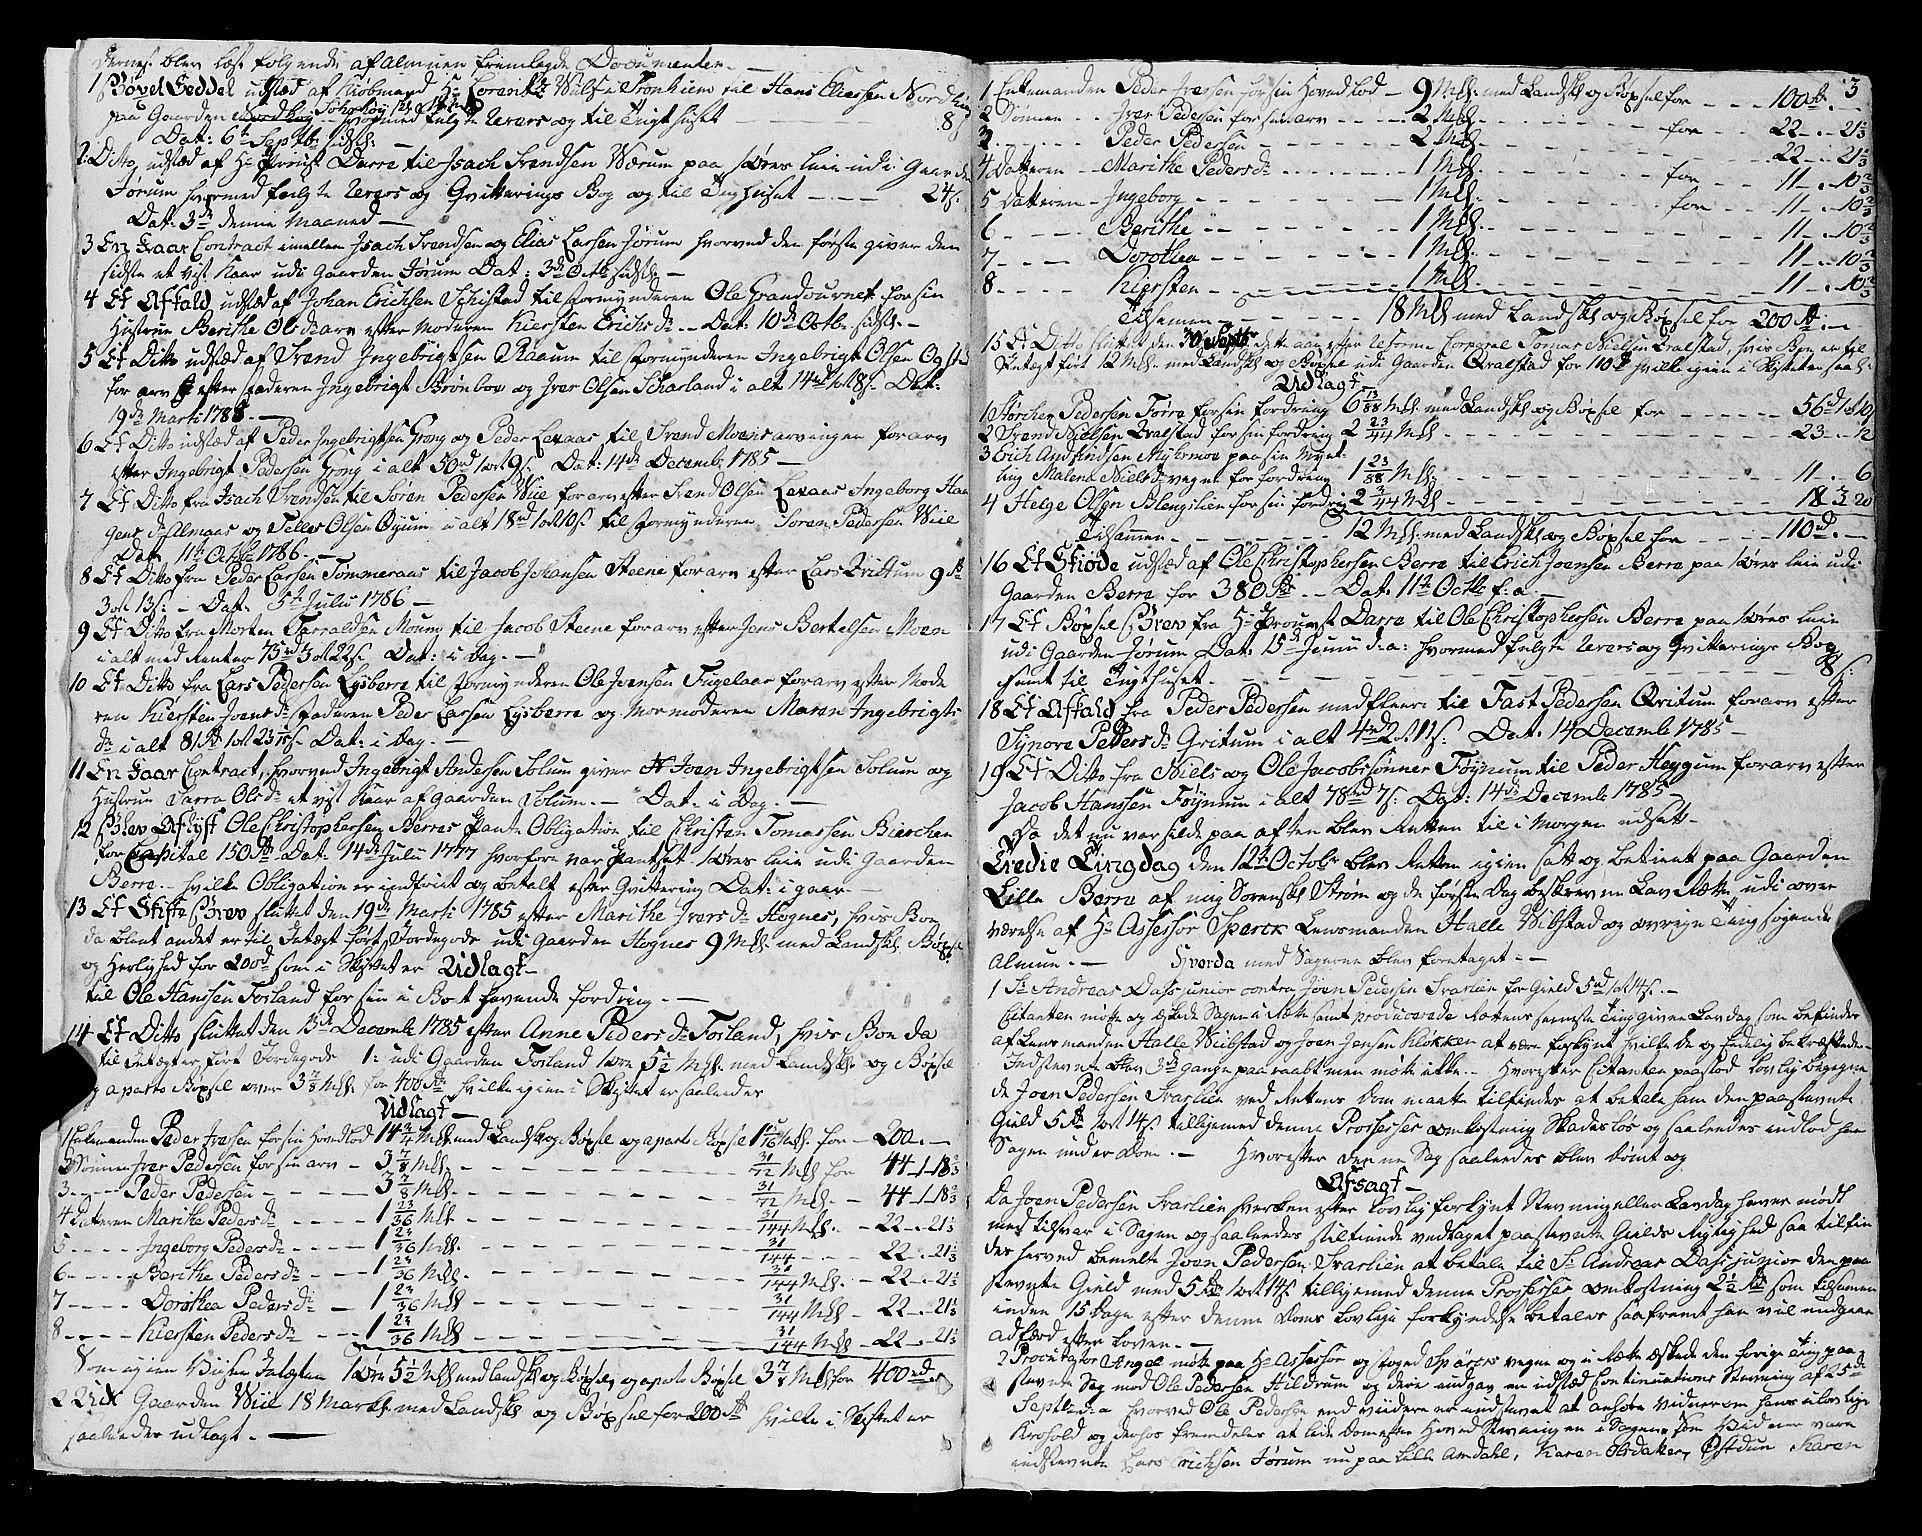 Dernest blev læst følgende af Almuen fremlagde Documenter. —
1 Bøxel Seddel udstæd af Kiøbmand Hr. Lorentz Wulf i Tronhiem til Hans Eliesen Nordhus
paa Gaarden hvormed fulgte Revers og til Tugthuset — 8 s
Dat: 6te Septbr. sidstl: —
2 Ditto udstæd af Hr. Provst Darre til Isach Svendsen Wærum paa 1 øres leie udi Gaarden
Jørum hvormed fulgte Revers og Qvitterings Bog og til Tugthuset — 24 s.
Dat: 3de denne Maaned —
3 En Kaar Contract imellem Isach Svendsen og Elias Larsen Jørum hvorved den første giver den
sidste et vist Kaar udi Gaarden Jørum Dat: 3de Octb. sidstl. —
4 Et Afkald udstæd af Johan Erichsen Schistad til Formynderen Ole Grandournet for sin
Hustrue Berithe Olsdr. arv efter Moderen Kiersten Erichsdr. — Dat: 10de Octbr. sidstl. —
5 Et Ditto udstæd af Svend Ingebrigtsen Raaum til Formynderen Ingebrigt Olsen
for arv efter Faderen Ingebrigt Brønboe og Iver Olsen Scharland i alt 14 rd 1 ort 8 s. Dat:
19de Marti 1788. —
6 Et Ditto udstæd af Peder Ingebrigtsen Grong og Peder Lexaas til Svend Moens arvinger for arv
efter Ingebrigt Pedersen Grong i alt 50 rd 1 ort 9 s. Dat: 14de Decemb. 1785 —
7 Et Ditto fra Isach Svendsen til Søren Pedersen Wiie for arv efter Svend Olsen Lexaas Ingeborg Haa
gensdr. Almaas og Tolles Olsen Øyum i alt 18 rd 1 ort 10 s. til Formynderen Søren Pedersen Wiil
Dat: 11te Octbr. 1786. —
8 Et Ditto fra Peder Larsen Tømmeraas til Jacob Johansen Steene for arv efter Lars Qvittum 9 Rd
3 ort 13 s: — Dat: 5te Julii 1786 —
9 Et Ditto fra Morten Tarraldsen Moung til Jacob Steene for arv efter Jens Bertelsen Moen
i alt med Renter 73 rd 3 ort 22 s. Dat: i Dag. —
10 Et Ditto fra Lars Pedersen Lysberre til Formynderen Ole Ivensen Fugelaar for arv efter Mode
ren Kiersten Joensdr. Faderen Peder Larsen Lysberre og Mormoderen Maren Ingebrigts
dr. i alt 81 Rd 1 ort 23 s. Dat: i Dag. —
11 En Kaar Contract, hvorved Ingebrigt Andersen Solum giver Joen Ingebrigtsen Solum og
Hustrue Sarra Olsdr. et vist Kaar af Gaarden Solum. — Dat: i Dag. —
12 Blev Aflyst Ole Christophersen Berres Pante Obligation til Christen Tomassen Bierchen
for Capital 150 Rd Dat: 14de Julii 1777 hvorfore var Pantsat 1 øres leie udi Gaarden
Berre. — hvilke Obligation er indfriet og betalt efter Qvittering Dat: i gaar. —
13 Et Skifte Brev sluttet den 19de Marti 1785 efter Marithe Iversdr. Høgnes, hvis Boe
da blant andet er til Intægt ført Jordegods udi Gaarden Høgnes 9 Mkl. med Landsk. Bøxel
og Herlighed for 200 d som i Skiftet er Udlagt —
til Ole Hanssen Forland for sin i Boet havende fordring. —
14 Et Ditto sluttet den 15de Decemb. 1785 efter Anne Pedersdr. Forland, hvis Boe da
til Intægter ført Jordegods 1: udi Gaarden Forland 1 øre 5½ Mkl. med Landsk. og Bøxel
og aparte Bøxel over 3 7/8 Mkl. for 400 Rd hvilke igien i Skiftet er saaledes
Udlagt —
1 Enkemanden Peder Iversen for sin Hovedlod 14 3/4 Mkl. med Landsk. og Bøxel og aparte Bøxel 1 15/16 Mkl. for — 200. —
2 Sønnen Iver Pedersen for sin arv — 3 7/8 Mkl. — 31/72 Mkl for 44-1-18 2/3
3 — Peder Pedersen — 3 7/8 Mkl. — 31/72 Mkl. — 44-1-18 2/3
4 Datteren Marithe Pedersdr. — 1 23/36 Mkl. — 31/144 Mkl. — 22 . . 21 1/3
5 — Ingeborg Pedersdr. — 1 23/36 Mkl. — 31/144 — 22 . . 21 1/3
6 — Berithe Pedersdr. — 1 23/36 Mkl. — 31/144 Mkl. — 22 . . 21 1/3
7 — Dorothea Pedersdr. — 1 23/36 Mkl — 31/144 Mkl — 22 . . 21 1/3
8 — Kiersten Pedersdr. — 1 23/36 Mkl — 31/144 Mkl — 22 . . 21 1/3
Som igien Viisen Intægten 1 øre 5½ Mkl med landsk. og Bøxel, og aparte Bøxel 3 7/8 Mkl for 400 rd.
2 Udi Gaarden Wiil 18 Markl. med Landsk. og Bøxsel for 200 Rd hvilke i Skiftet er
saaledes udlagt. —
3
1 Enkemanden Peder Iversen for sin Hoved Lod — 9 Mkl. med Landsk. og Bøxsel for — 100 Rd. —
2 Sønnen . . Iver Pedersen for sin arv — 2 Mkl — for — 22 — . 21 1/3
3 — Peder Pedersen — 2 Mkl. — 22 — . 21 1/3
4 Datteren — Marithe Pedersdr. — 1 Mkl. — for — 11 — . 10 2/3
5 Datteren — Ingeborg — 1 Mkl. — for — 11 — . 10 2/3
6 — Berithe — 1 Mkl. — 11 — . 10 2/3
7 — Dorothea — 1 Mkl. — 11 — . 10 2/3
8 — Kiersten — 1 Mkl. — 11 — . 10 2/3
Tilsammen — 18 Mkl med Landsk. og Bøxsel for 200 Rd. —
15 Et Ditto sluttet den 30 Septbr. dette aar efter Reforme Corporal Tomas Nielsen Qvalstad, hvis Boe er til
Intægt ført 12 Mkl. med Landsk. og Bøxsel udi Gaarden Qvalstad for 110 d hvilke igien i Skiftet er saal:
Udlagt
1 Størcher Pedersen Førre for sin fordring 6 13/88 Mkl. med Landsk. og Bøxsel for — 56 d 1 ort 10
2 Svend Nielsen Qvalstad for sin fordring 2 23/44 Mkl — 23 . . 12
3 Erich Andfindsen Myhrmoe paa sin Mynt-
ling Malene Nielsdr. vegne for fordring 1 23/88 Mkl. — 11 . . 6
4 Helge Olsen Blengslien for sin fordring 2 3/44 Mkl — 18 3 20
Tilsammen — 12 Mkl. med Landsk. og Bøxsel for — 110 rd. —
16 Et Skiøde udstæd af Ole Christophersen Berre til Erich Joensen Berre paa 1 øres leie udi
Gaarden Berre for 380 Rd. — Dat: 11te Octbr. f: a. —
17 Et Bøxsel Brev fra Hr. Provst Darre til Ole Christophersen Berre paa 1 øres leie
udi Gaarden Jørum Dat: 15de Junii d: a: hvormed fulgte Revers og Qvitterings Bog,
samt til Tugthuset. — 8 s:
18 Et Afkald fra Peder Pedersen med fleere til Fast Pedersen Qvitum for arv efter
Synove Pedersdr. Gritum i alt 4 rd 2 ort 11 s: Dat: 14 Decemb. 1785 —
19 Et Ditto fra Niels og Ole Jacobssønner Føynum til Peder Heygum for arv efter
Jacob Hanssen Føynum i alt 78 rd 7 s: Dat: 14de Decemb. 1785
Da det nu var silde paa aften blev Retten til i Morgen udsat —
Tredie Tingdag den 12te Octobr. blev Retten igien satt og betient paa Gaarden
Lille Berre af mig Sorenskr. Strøm og de første Dag beskrevne Lav Rætte udi over
værelse af Hr. Assessor Spærck Lensmanden Halle Wibstad og øvrige Tingsøgende
Almue. — Hvorda med Sagerne blev foretaget: —
1 Sr. Andreas Dass junior contra Joen Pedersen Svarlien for Gield 5 rd 1 ort 14 s. —
Citanten møtte og æskede Sagen i Rætte samt producerede Rættens seneste Ting given Lavdag som befindes
af Lensmanden Halle Weibstad og Joen Jensen Kløkker at være forkynt hvilke de og Eedelig bekræftede —
Indstevnte blev 3de gange paaraabt men møtte ikke. — Hvorefter Citanten paastod lovlig begegne
de Joen Pedersen Svarlien ved Rettens Dom maatte tilfindes at betale ham den paastevnte
Gield 5 Rd 1 ort 14 s. tilligemed denne Prossesses omkostning Skadesløs og saaledes indlod han
Sagen under Dom. — Hvorefter denne Sag saaledes blev dømt og
Afsagt —
Da Joen Pedersen Svarlien hverken efter lovlig forkynt Stevning eller Lavdag haver mødt
med tilsvar i Sagen og saaledes stiltiende vedtaget paastevnte Gields Rigtighed saa tilfin
des herved bemelte Joen Pedersen Svarlien at betale til Sr. Andreas Dass junior den paa
stevnte Gield med 5 Rd 1 ort 14 s tilligemed denne Prossesses omkostning 2½ Rd som tilsamen
inden 15 Dage efter denne Doms lovlige forkyndelse betales saafremt han vil undgaae
adfærd efter Loven. —
2 Procurator Angel møtte paa Hr. Assessor og foged Spärcks vegne og i Rætte æskede den forige Ting paa-
stevnte Sag mod Ole Pedersen Hildrum og derie indgav en udstæd Continuations Stevning af 25de
Septb. d: a hvorved Ole Pedersen end viidere er indstevnt at anhøre vidner om hans ulovlige
Krohold og derfor fremdeles at lide Dom efter Hoved Stevningen i Sagen, som Vidner vare
indstevnte Lars Erichsen Jørum nu paa Lille Amdahl, Karen Olsdatter, Østdun, Karen